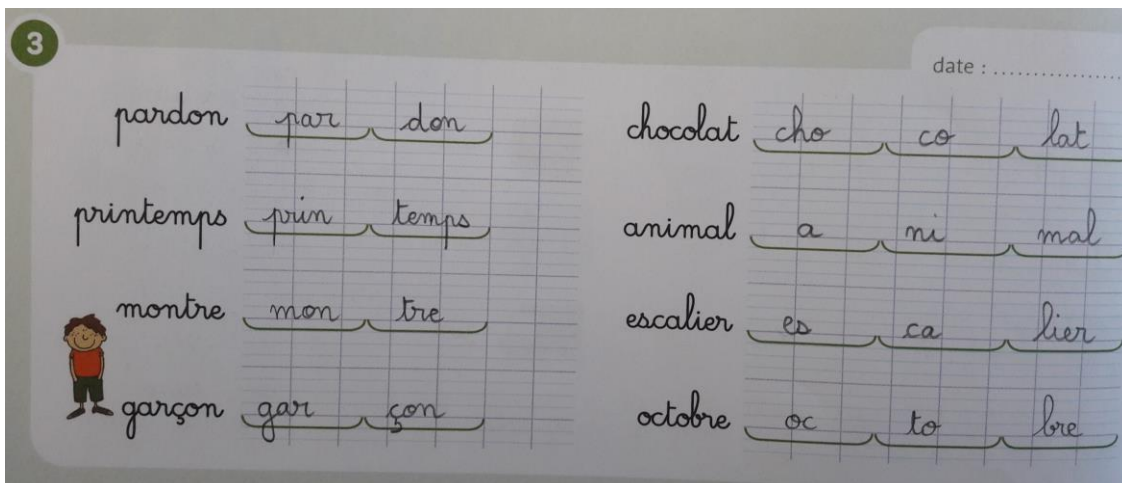 3
date : ..................
pardon par don
printemps prin temps
montre mon tre
garçon gar çon
chocolat cho co lat
animal a ni mal
escalier es ca lier
octobre oc to bre